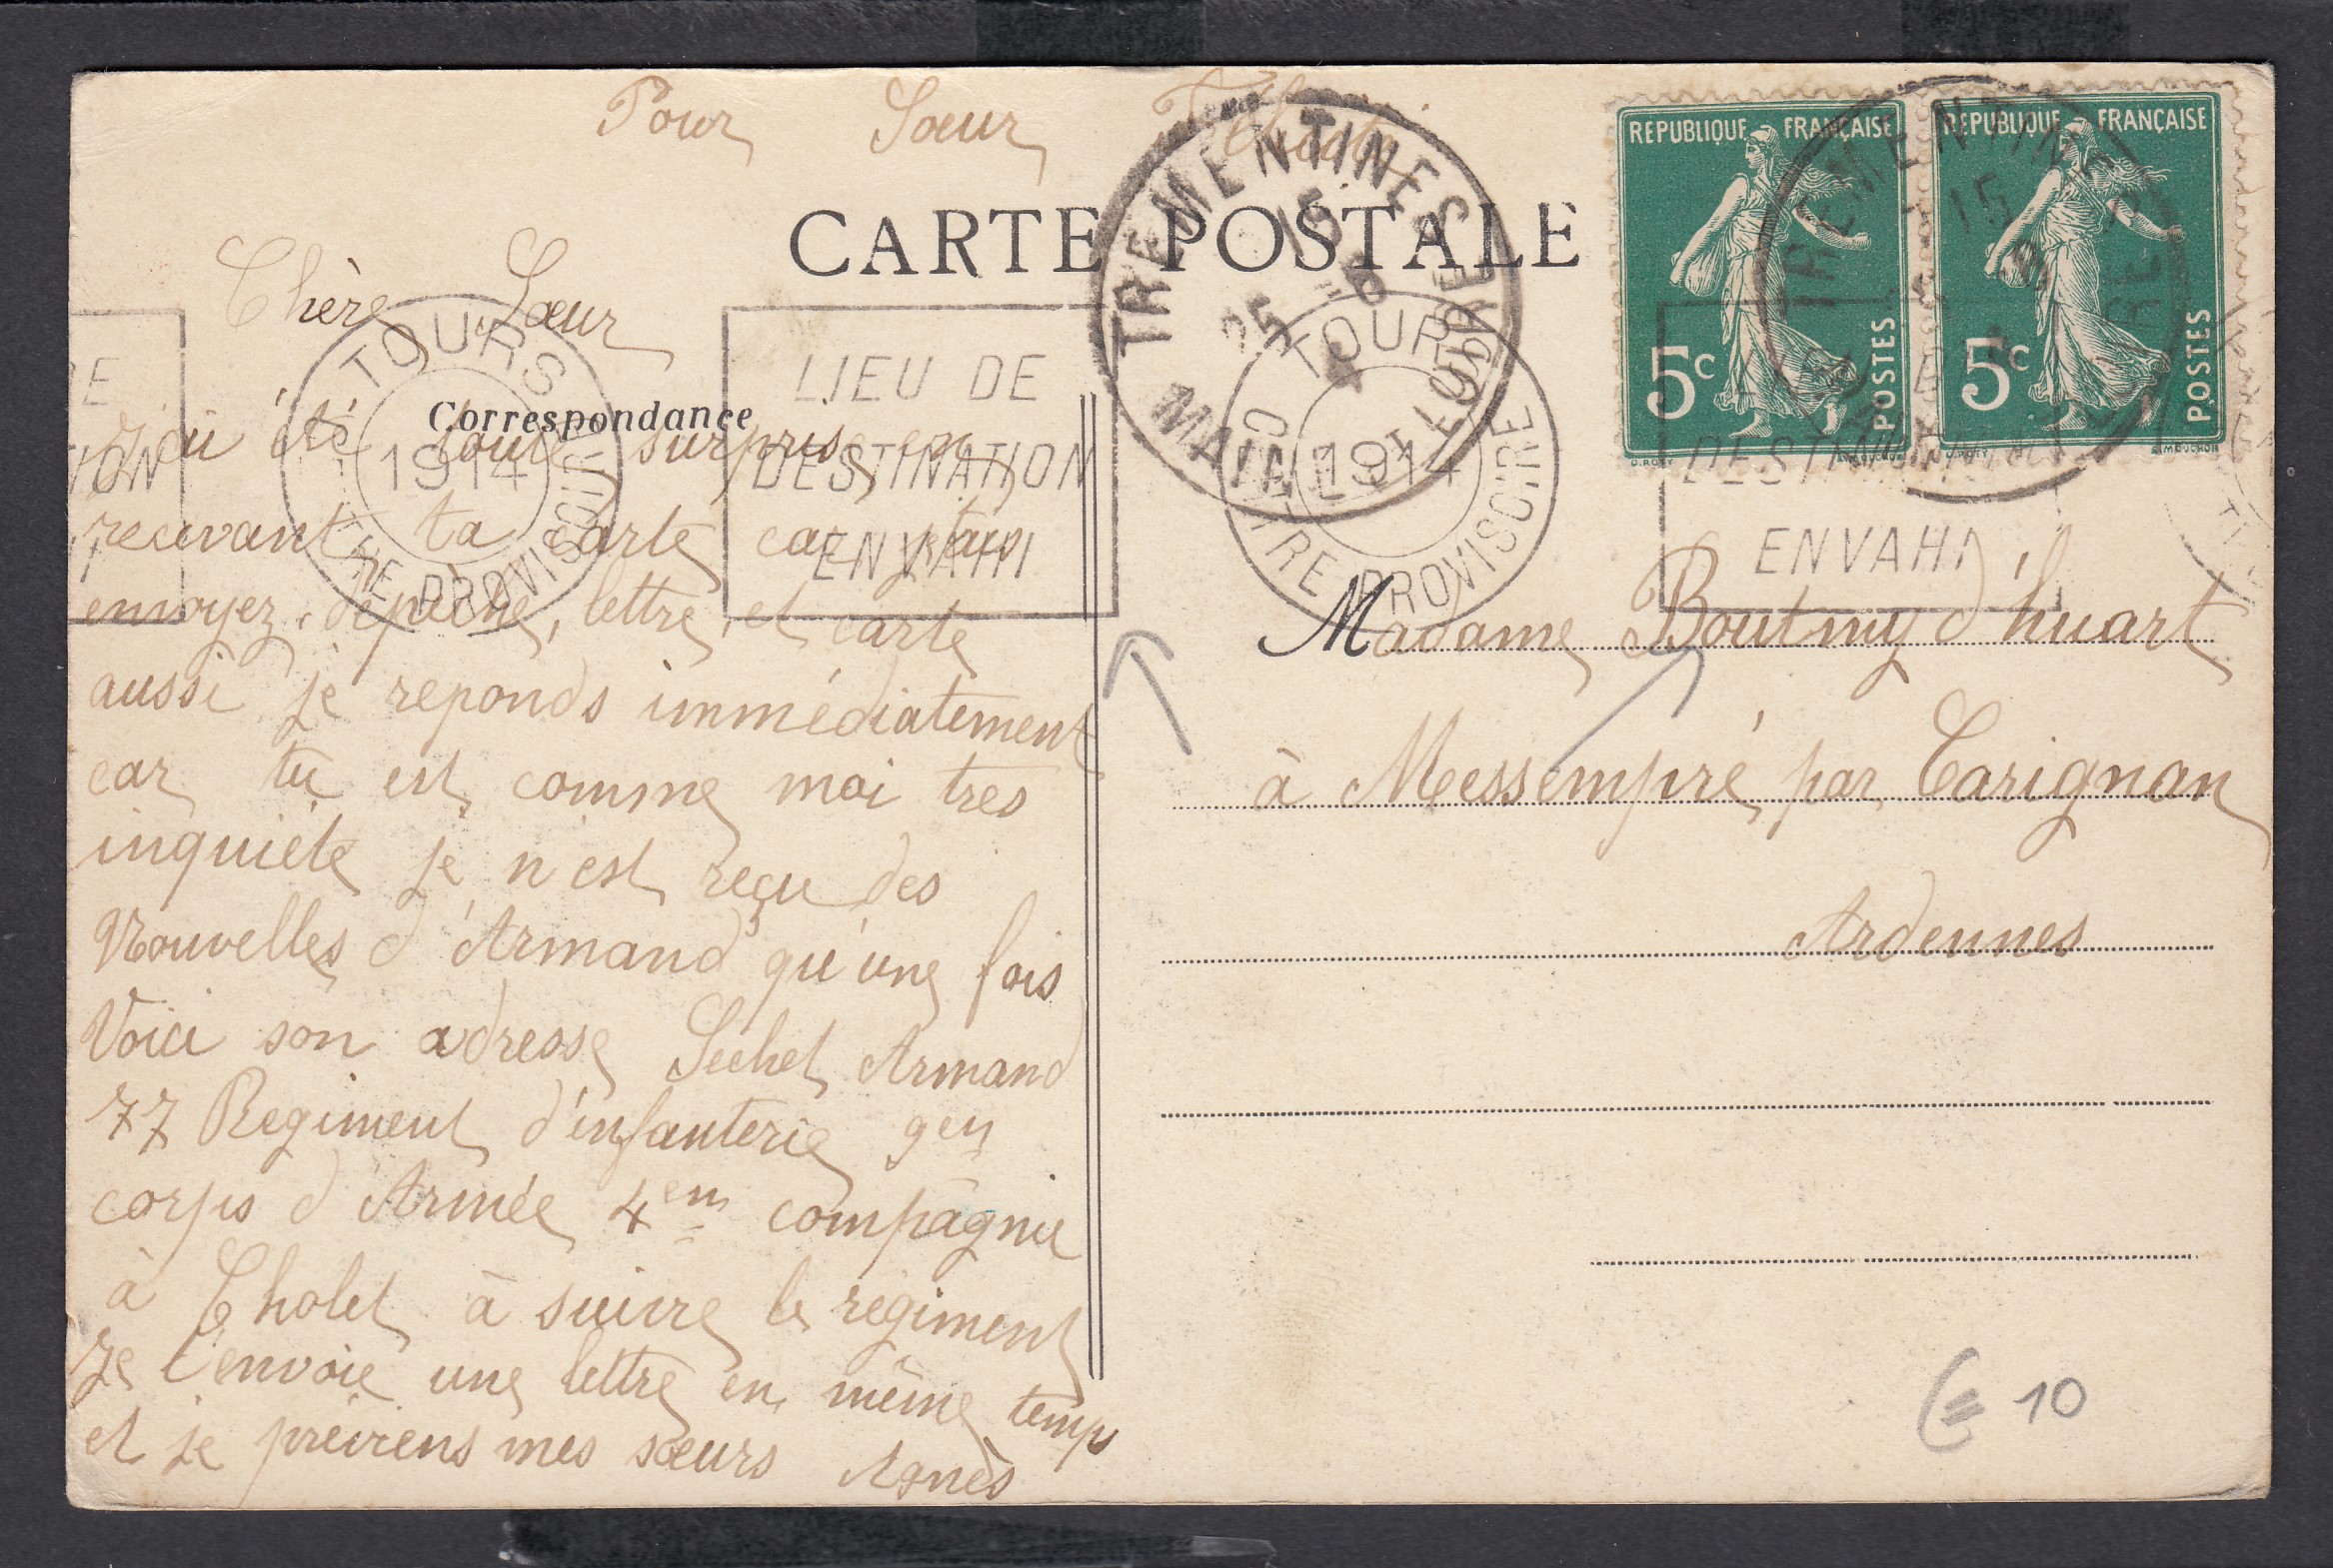 Pour Sœur
CARTE POSTALE
TREMENTINES
15
25 8
14
MAINE ET LOIRE
REPUBLIQUE FRANÇAISE
5c
POSTES
O.ROTY
REPUBLIQUE FRANÇAISE
5c
POSTES
O.ROTY E.MOUCHON
TREMENTINES
15
Chère Sœur
TOURS
1914
CENTRE PROVISOIRE
LIEU DE
DESTINATION
ENVAHI
TOURS
1914
CENTRE PROVISOIRE
DESTINATION
ENVAHI
RE
TION
I
Correspondance
J'ai été toute surprise en
recevant ta carte car j'etais
envoyez, dépêche, lettre, et carte
aussi je reponds immédiatement
car tu est comme moi tres
inquiete je n'est reçu des
Nouvelles d'Armand qu'une fois
Voici son adresse Sechet Armand
77 Regiment d'infanterie 9em
corps d'Armée 4em compagnie
à Cholet à suivre le regiment
Je t'envoie une lettre en même temps
et je préviens mes sœurs Agnès
Madame Boutmy d'huart
à Messempré par Carignan
Ardennes
10